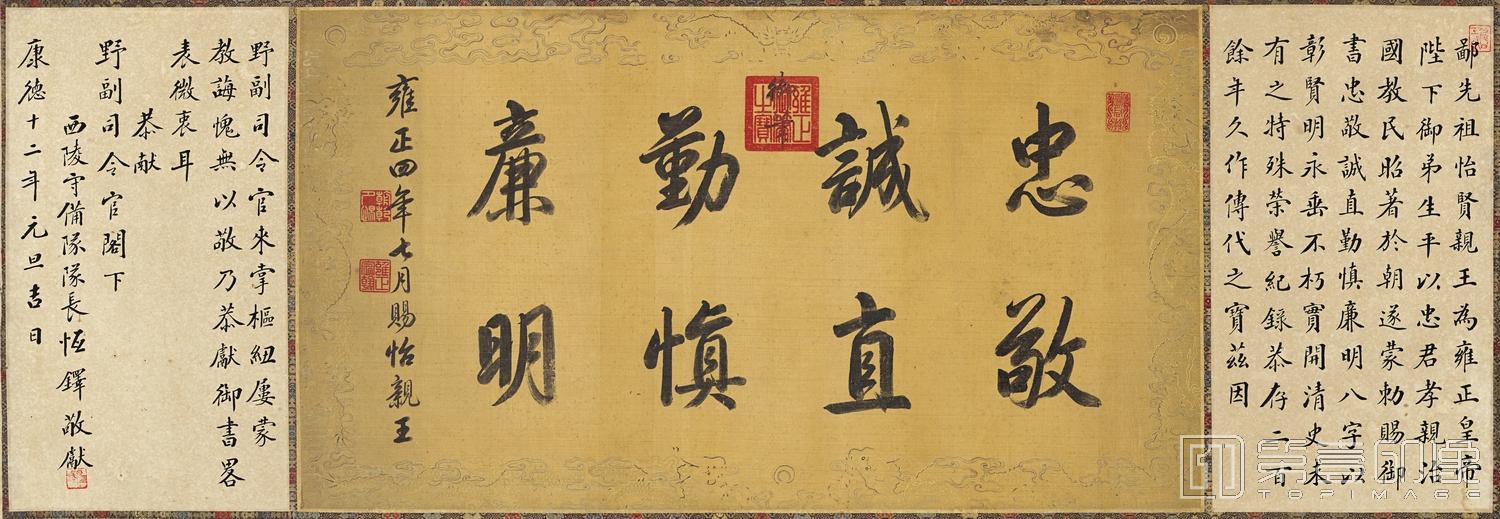 鄙先祖怡賢親王為雍正皇帝
陛下御弟生平以忠君孝親治
國教民昭著於朝遂蒙勅賜御
書忠敬誠直勤慎廉明八字以
彰賢明永垂不朽實開清史未
有之特殊榮譽紀錄恭存二百
餘年久作傳代之寶茲因
忠敬
誠直
勤慎
廉明
雍正四年七月賜怡親王
雍正御筆之寶
野副司令官來掌樞紐屢蒙
教誨愧無以敬乃恭獻御書畧
表微衷耳
恭献
野副司令官閣下
西陵守備隊隊長恆鐸敬獻
康德十二年元旦吉日
TOPIMAGE